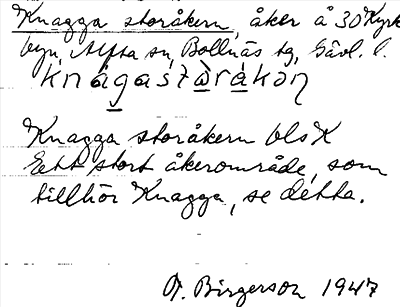 Knagga storåkern, åker å 30 Kyrk
byn, Alfta sn, Bollnäs tg, Gävl. l.
knágastòrákəṇ
Knagga storåkern bls K
Ett stort åkerområde, som
tillhör Knagga, se detta.
A. Birgerson 1947